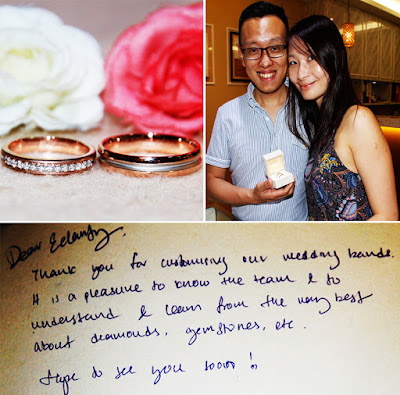 Dear
Thank you for customising our wedding bands.
It is a pleasure to know the team & to
understand & learn from the very best
about diamonds, gemstones, etc.
Hope to see you soon!